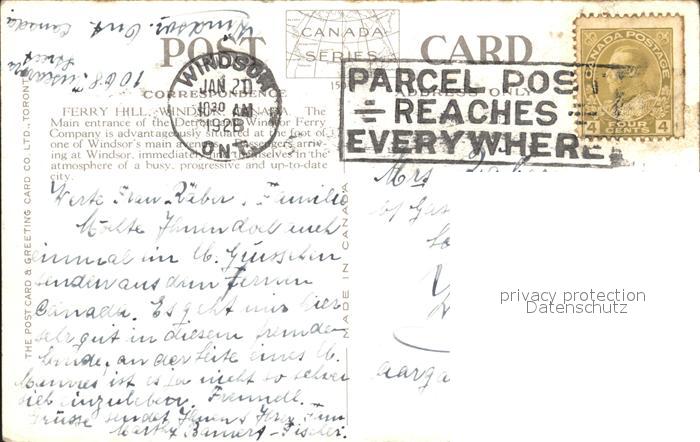 Windsor. Ont. Canada.
1068
Street
POST CARD
CANADA
SERIES
WINDSOR
JAN 21
1030 AM
1928
ONT.
PARCEL POST
REACHES
EVERYWHERE
CANADA POSTAGE
4 4
FOUR CENTS
CORRESPONDENCE
ADDRESS ONLY
FERRY HILL, WINDSOR, CANADA. The
Main entrance of the Detroit & Windsor Ferry
Company is advantageously situated at the foot of
one of Windsor's main arteries. Passengers arriv-
ing at Windsor, immediately find themselves in the
atmosphere of a busy, progressive and up-to-date
city.
THE POST CARD & GREETING CARD CO. LTD., TORONTO
MADE IN CANADA
Werte Frau Räber u. Familie
Möchte Ihnen doch auch
einmal ein lb. Grüsschen
senden aus dem fernen
Canada. Es geht mir hier
sehr gut in diesem fremden
Lande, an der Seite eines lb.
Mannes ist es ja nicht so schwer
sich einzuleben. Freundl.
Grüsse sendet Ihnen Ihre Frau
Martha
Mrs
Aarga
privacy protection
Datenschutz